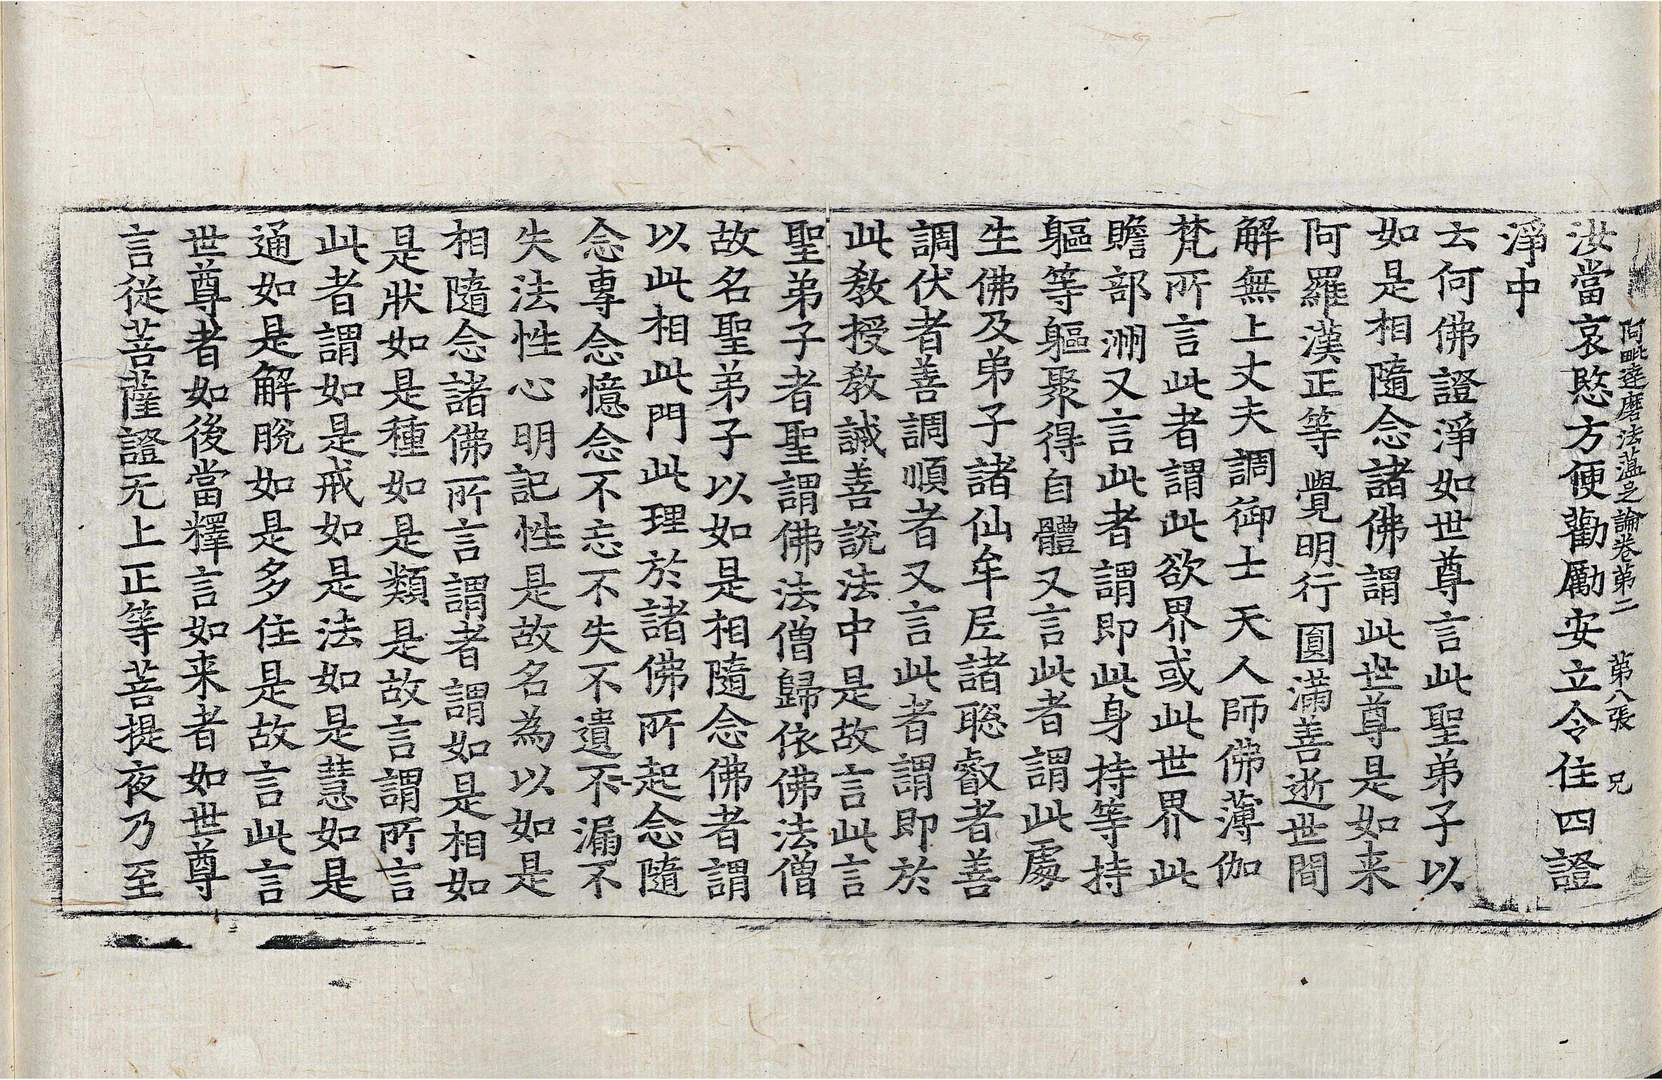 阿毗達磨法蘊足論卷第二 第八張 兄
汝當哀愍方便勸勵安立令住四證
淨中
云何佛證淨如世尊言此聖弟子以
如是相隨念諸佛謂此世尊是如来
阿羅漢正等覺明行圓滿善逝世間
解無上丈夫調御士天人師佛薄伽
梵所言此者謂此欲界或此世界此
贍部洲又言此者謂即此身持等持
軀等軀聚得自體又言此者謂此處
生佛及弟子諸仙牟尼諸聡叡者善
調伏者善調順者又言此者謂即於
此教授教誡善說法中是故言此言
聖弟子者聖謂佛法僧歸依佛法僧
故名聖弟子以如是相隨念佛者謂
以此相此門此理於諸佛所起念隨
念專念憶念不忘不失不遺不漏不
失法性心明記性是故名為以如是
相隨念諸佛所言謂者謂如是相如
是狀如是種如是類是故言謂所言
此者謂如是戒如是法如是慧如是
通如是解脫如是多住是故言此言
世尊者如後當釋言如来者如世尊
言從菩薩證无上正等菩提夜乃至